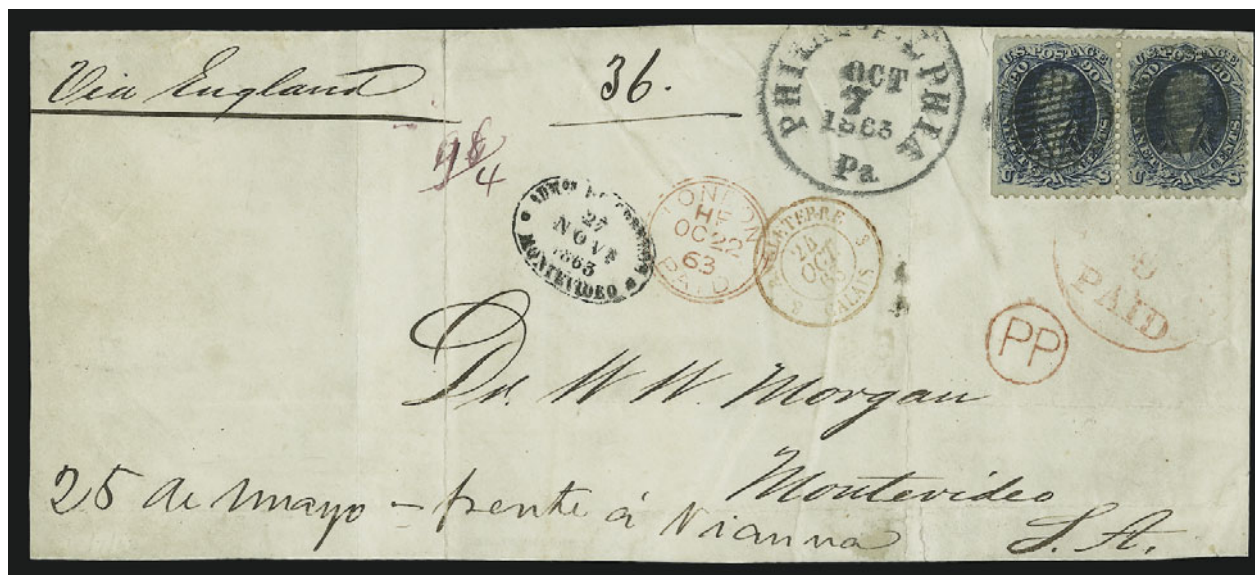 Via England
36.
PHILADELPHIA
OCT
7
1863
Pa.
U.S. POSTAGE
90 90
NINETY CENTS
U S
U.S. POSTAGE
90 90
NINETY CENTS
U S
27
NOVE
1863
MONTEVIDEO
LONDON
HF
OC 22
63
PAID
ANGLETERRE
OCT
CALAIS
8
PAID
PP
Dr. W. W. Morgan
Montevideo
S. A.
25 de mayo - frente á Vianna